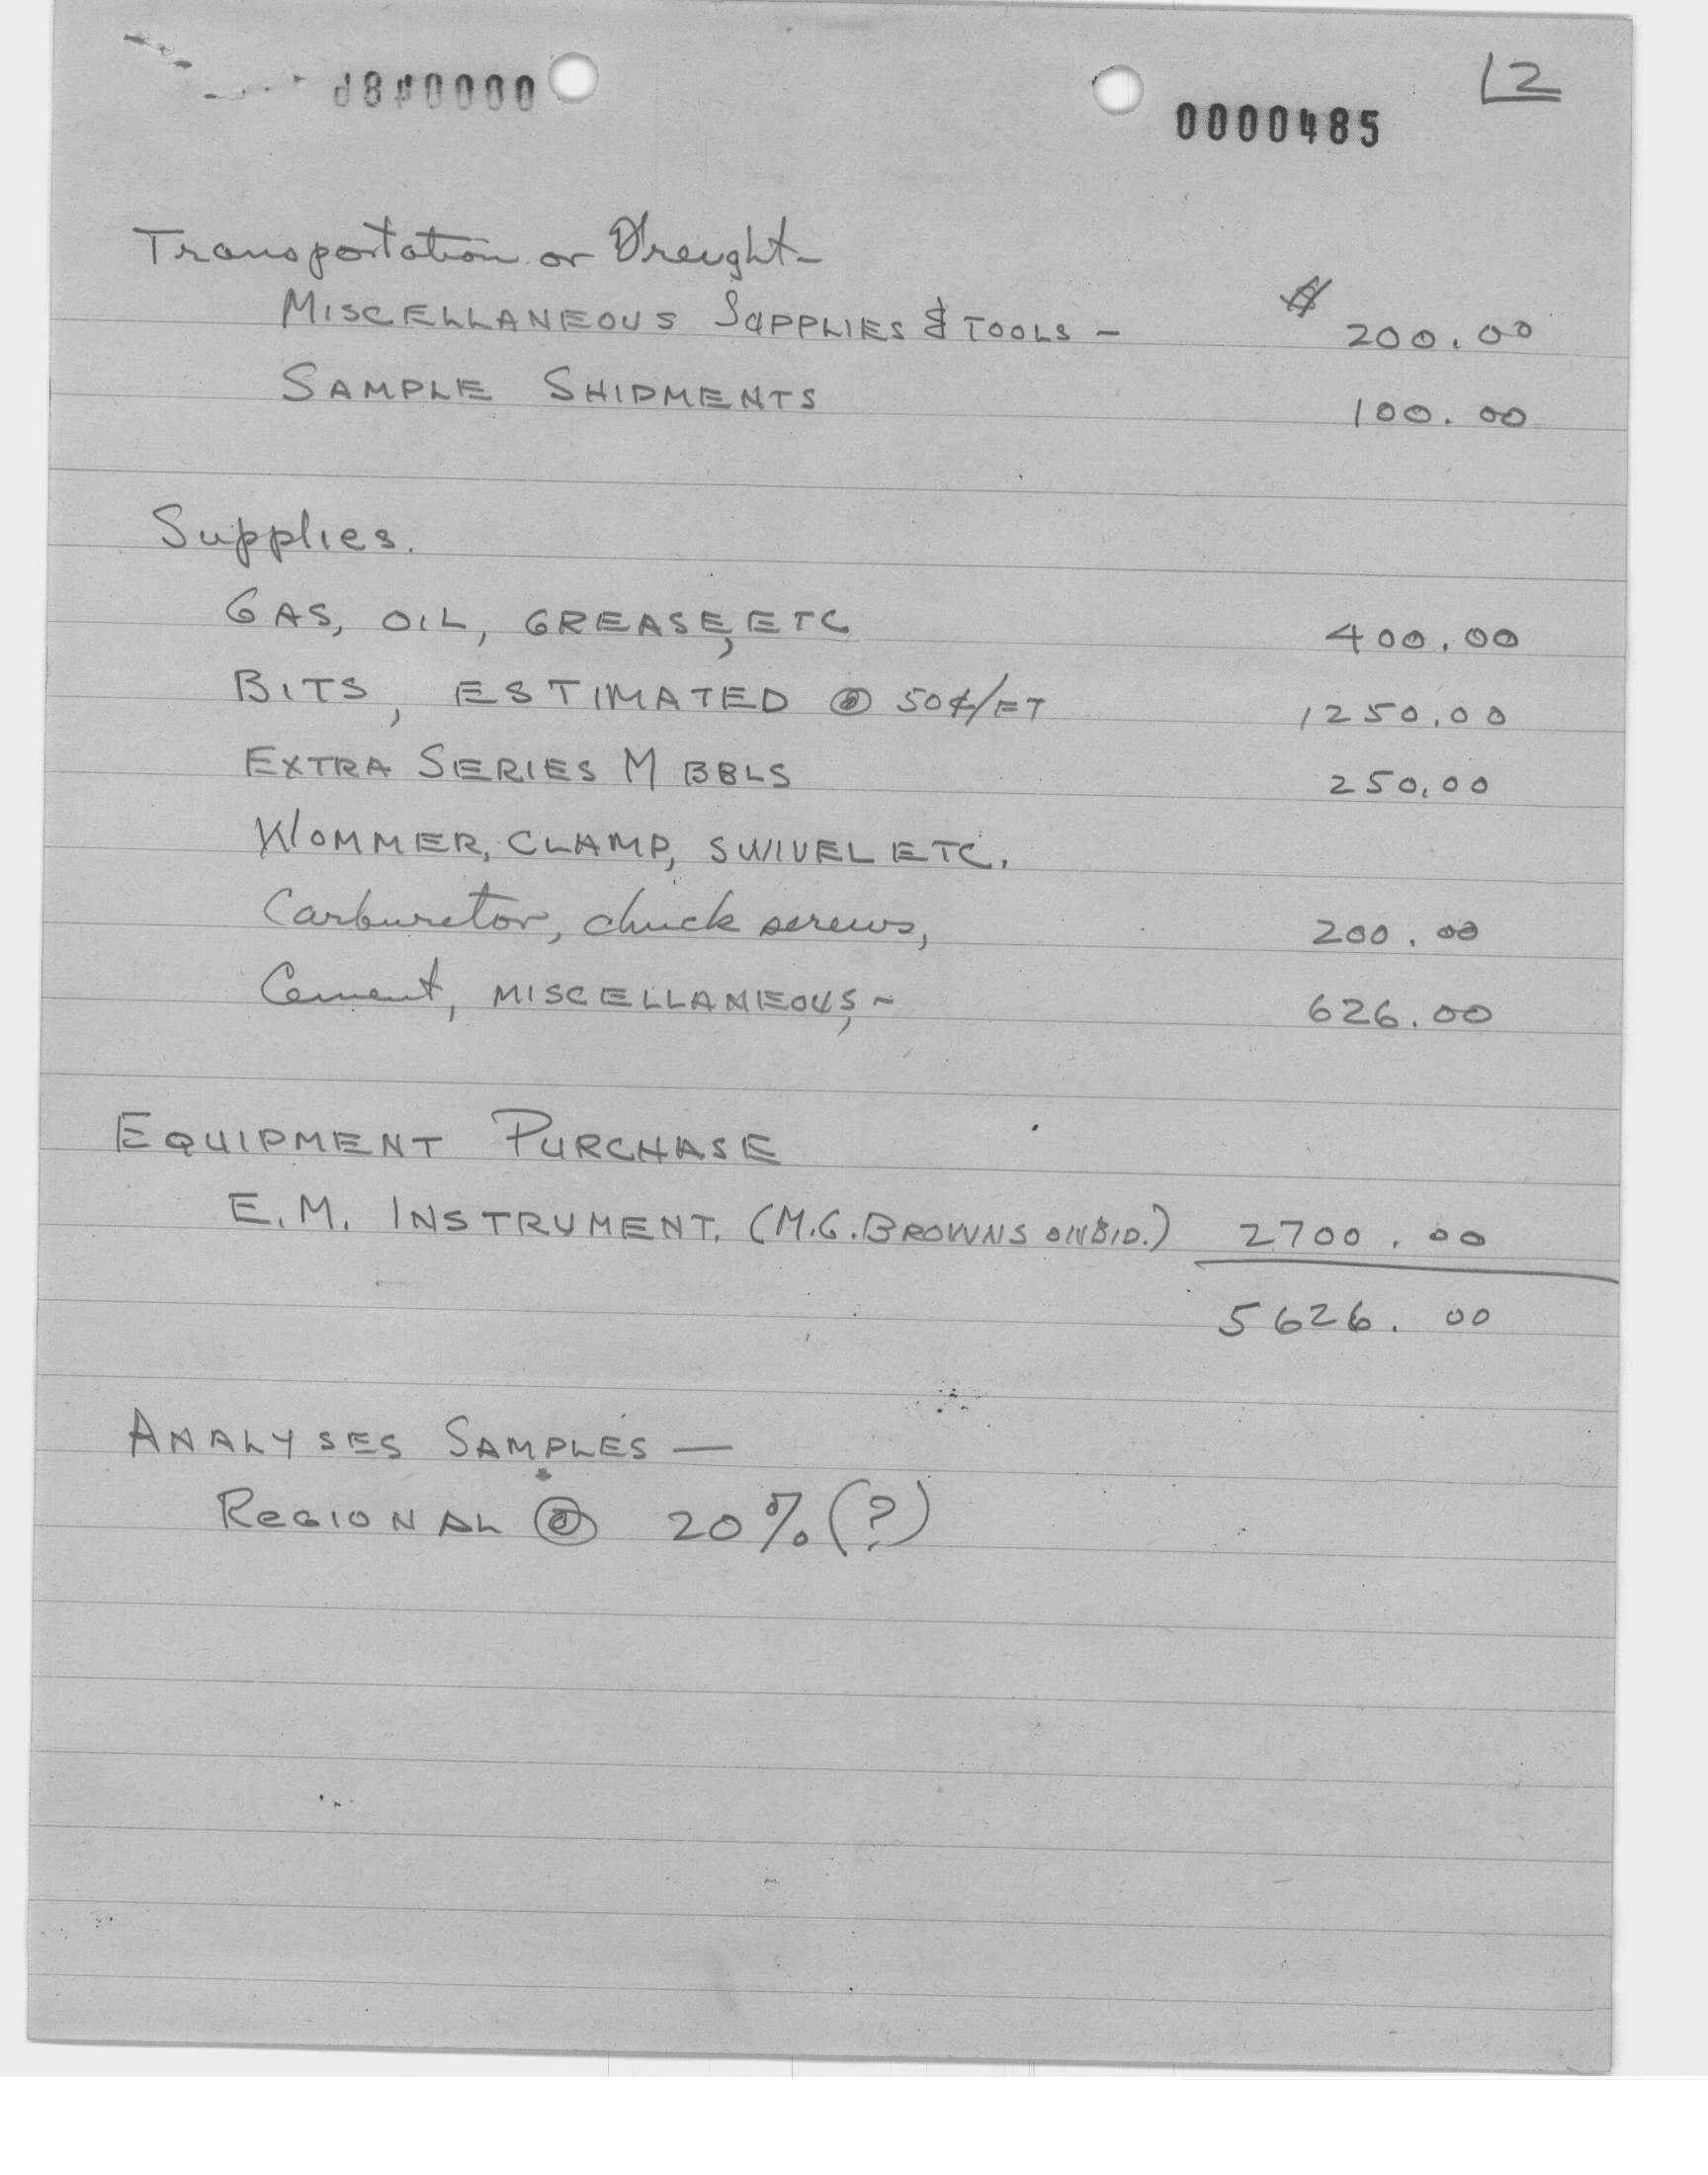 12
0000485
Transportation or Freight-
MISCELLANEOUS SUPPLIES & TOOLS - $ 200.00
SAMPLE SHIPMENTS 100.00
Supplies.
GAS, OIL, GREASE, ETC 400.00
BITS, ESTIMATED @ 50¢/FT 1250.00
EXTRA SERIES M BBLS 250.00
KLOMMER, CLAMP, SWIVEL ETC.
Carburetor, chuck screws, 200.00
Cement, MISCELLANEOUS, - 626.00
EQUIPMENT PURCHASE
E.M. INSTRUMENT. (M.G. BROWNS BID.) 2700.00
5626.00
ANALYSES SAMPLES —
REGIONAL @ 20% (?)